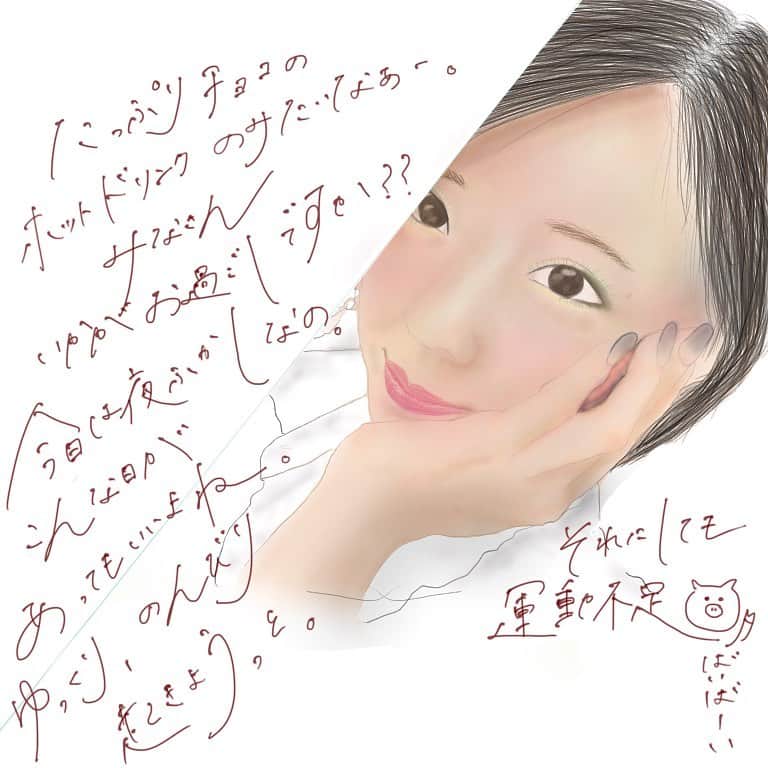 たっぷりチョコの
ホットドリンクのみたいなあー。
みなさん
いかがお過ごしですか??
今日は夜ふかしなの。
こんな日が
あってもいいよねー。
ゆっくり、のんびり
起きようっと。
それにしても
運動不足
ばいばーい